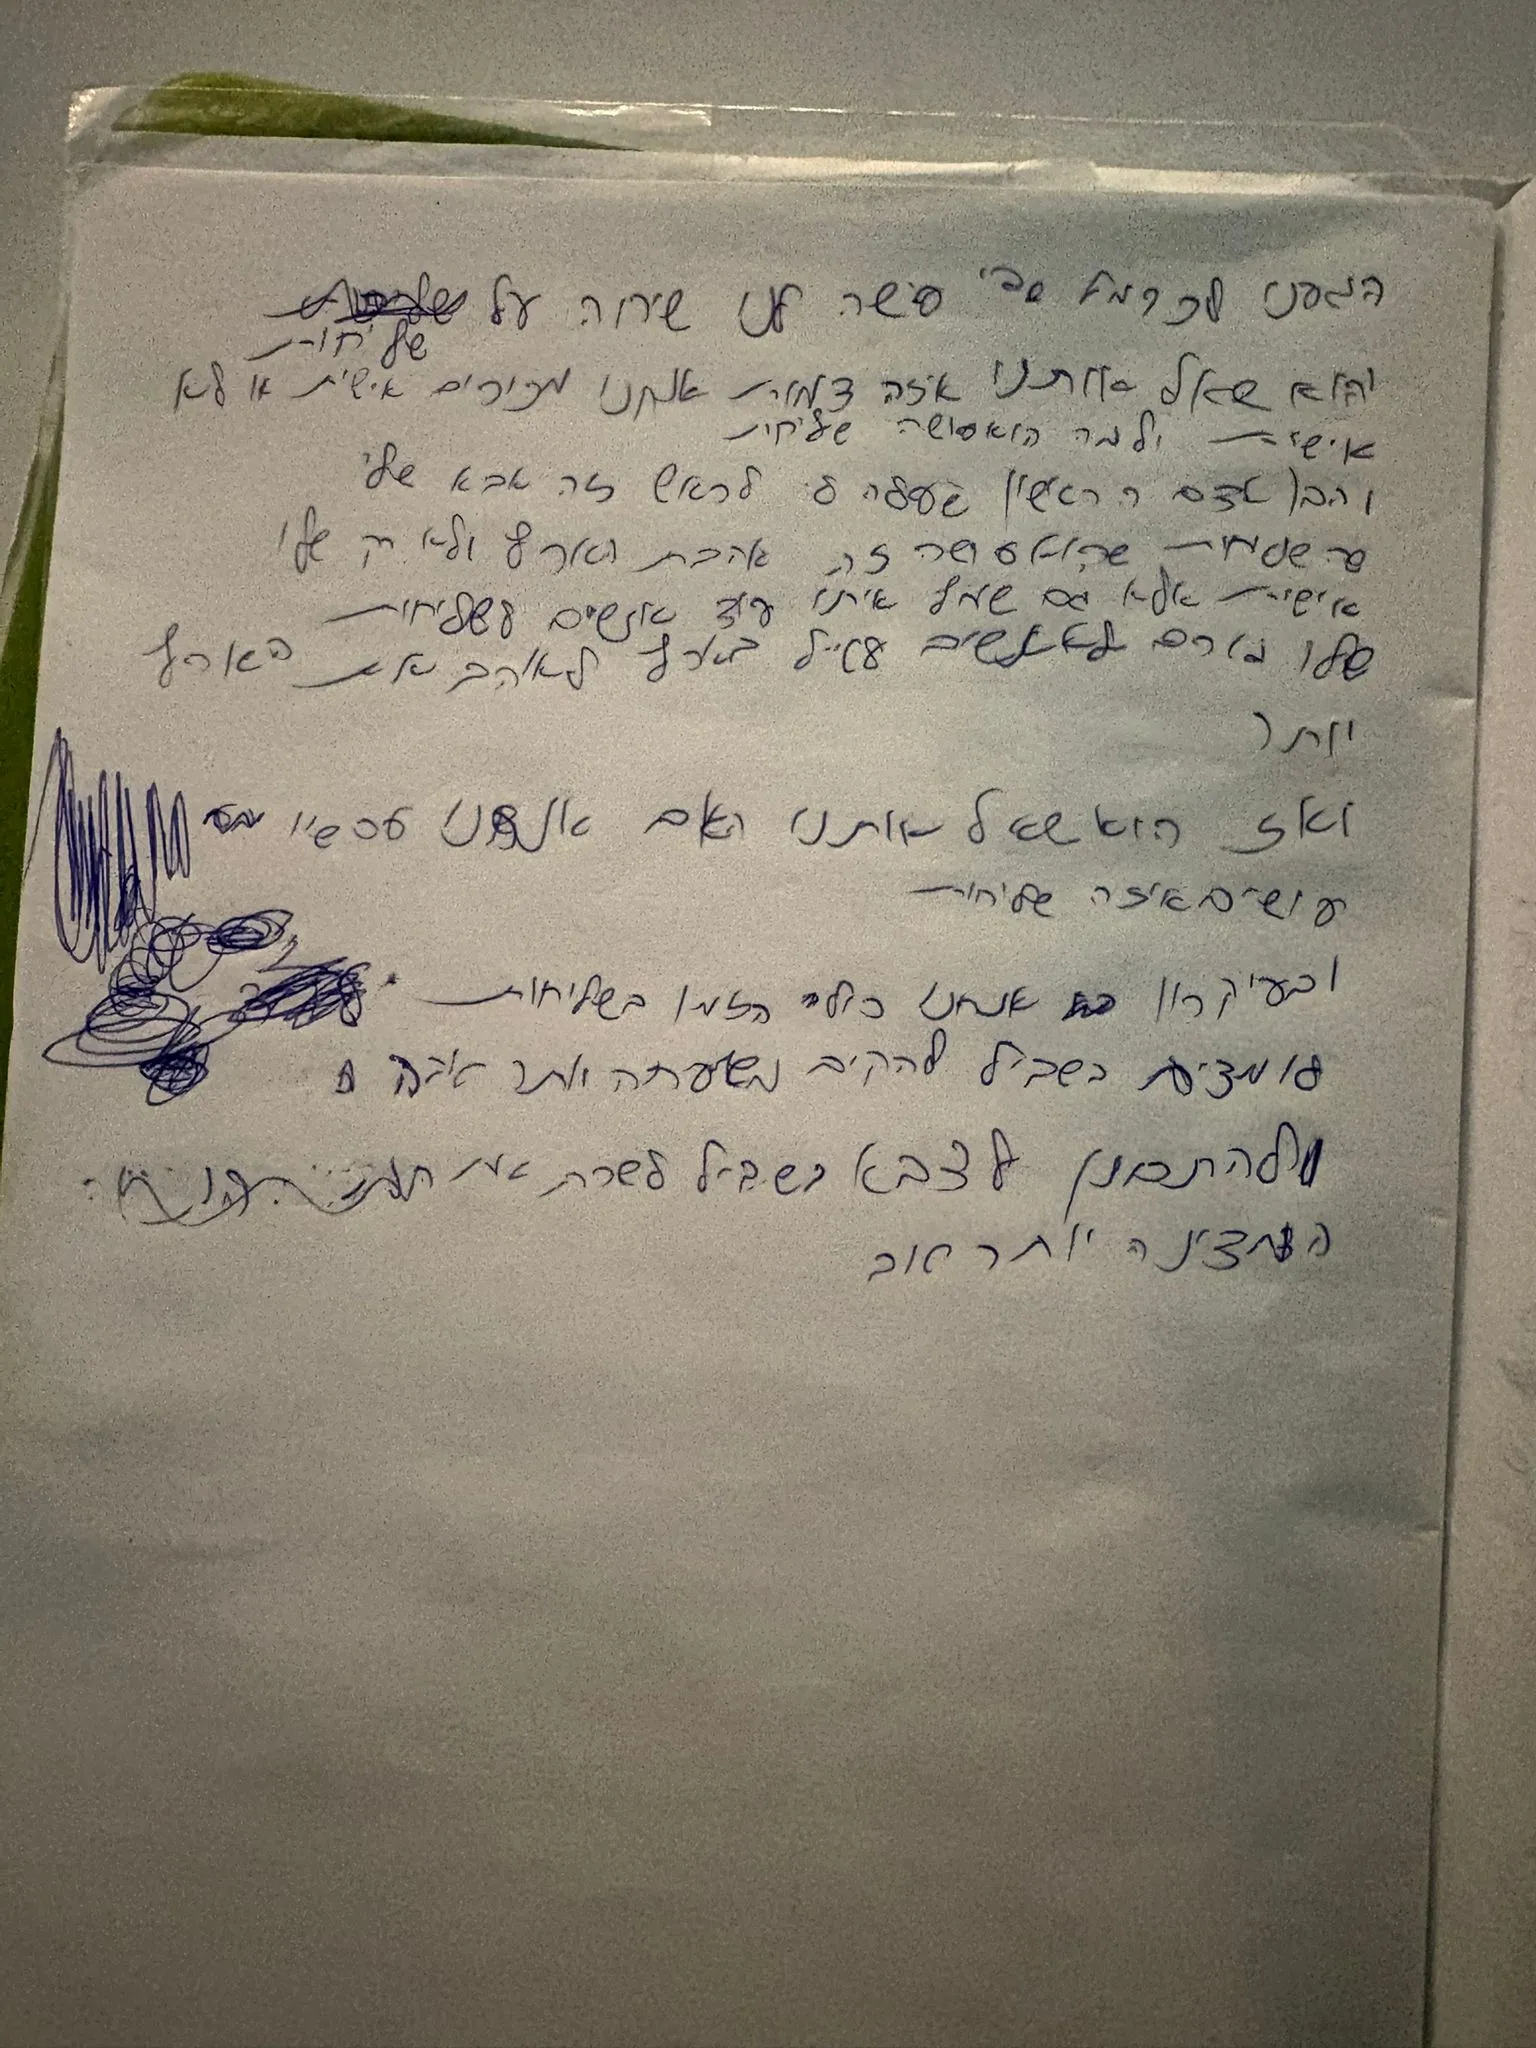 הגענו לכרמל צבי עשה לנו שיחה על
שליחות
והוא שאל אותנו איזה דמות אנחנו מכירים אישית או לא
אישית ולמה הוא עושה שליחות
והבן אדם הראשון שעלה לי לראש זה אבא שלי
שהשליחות שהוא עושה זה אהבת הארץ ולא רק שלו
אישית אלא גם שמף איתו עוד אנשים שליחות
שלו גורם לאנשים לטייל בארץ לאהוב את הארץ
יותר
ואז הוא שאל אותנו האם אנחנו עכשיו
עושים איזה שליחות
ובעיקרון אנחנו כול הזמן בשליחות
בשביל להקים משפחה יותר
ולהתכונן לצבא בשביל לשרת את
המדינה יותר טוב